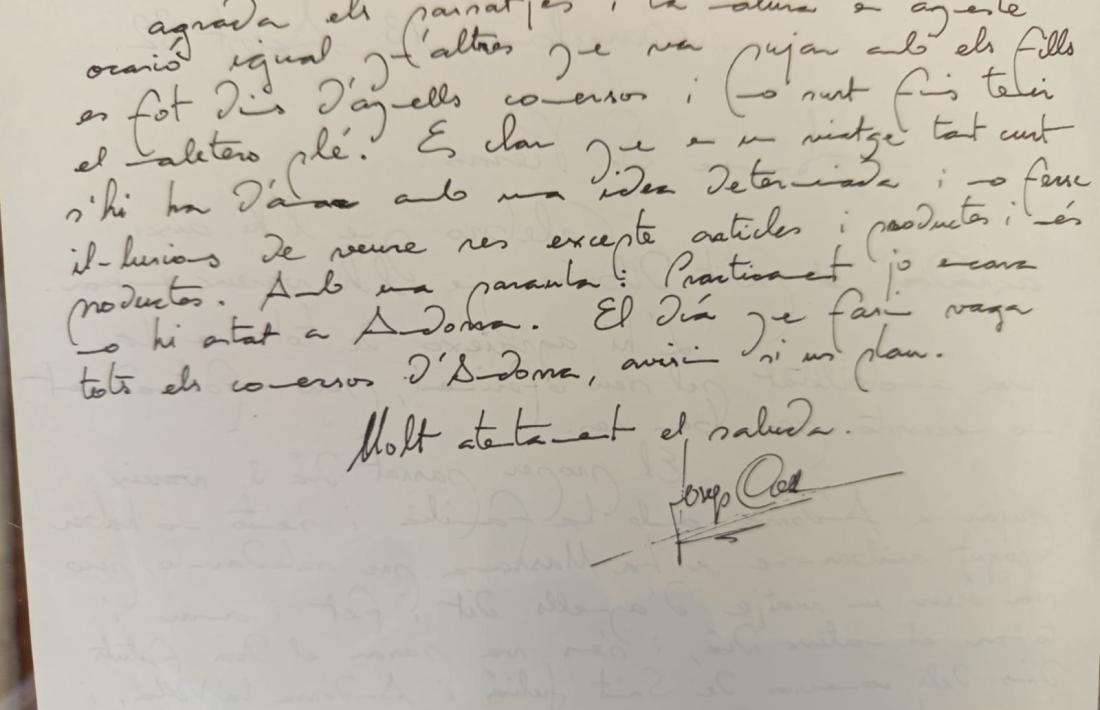 agrada els paisatjes i la natura en aqueste
ocasió igual q'altres que va pujar amb els fills
es fot dins d'aquells comersos i no surt fins tenir
el maletero plé. Es clar que en un viatge tant curt
s'hi ha d'anar amb una idea determinada i no ferse
il-lusions de veure res excepte articles i productes i més
productes. Amb una paraula: Practicament jo encara
no hi estat a Andorra. El díá que fasin vaga
tots els comersos d'Andorra, avisin si us plau.
Molt atentament el saluda.
Josep